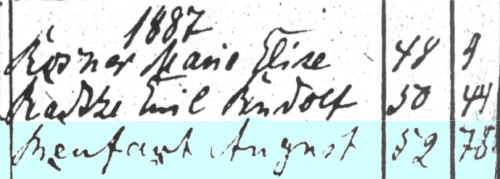 1887
Rosner Marie Elise 48 9
Radtke Emil Rudolf 50 44
Renfant August 52 78